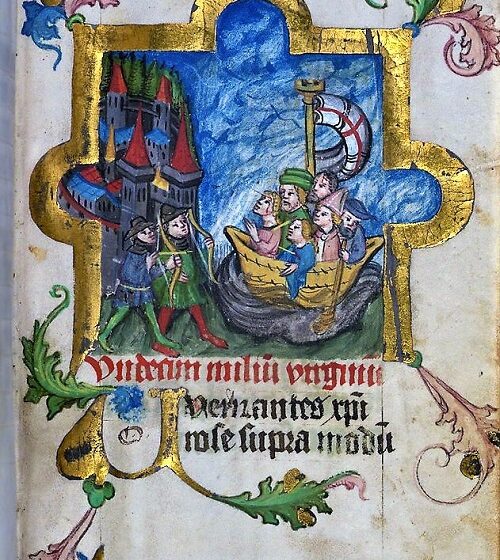 Vndecim miliū virginū
O Vernantes xp̄i
rose supra modū